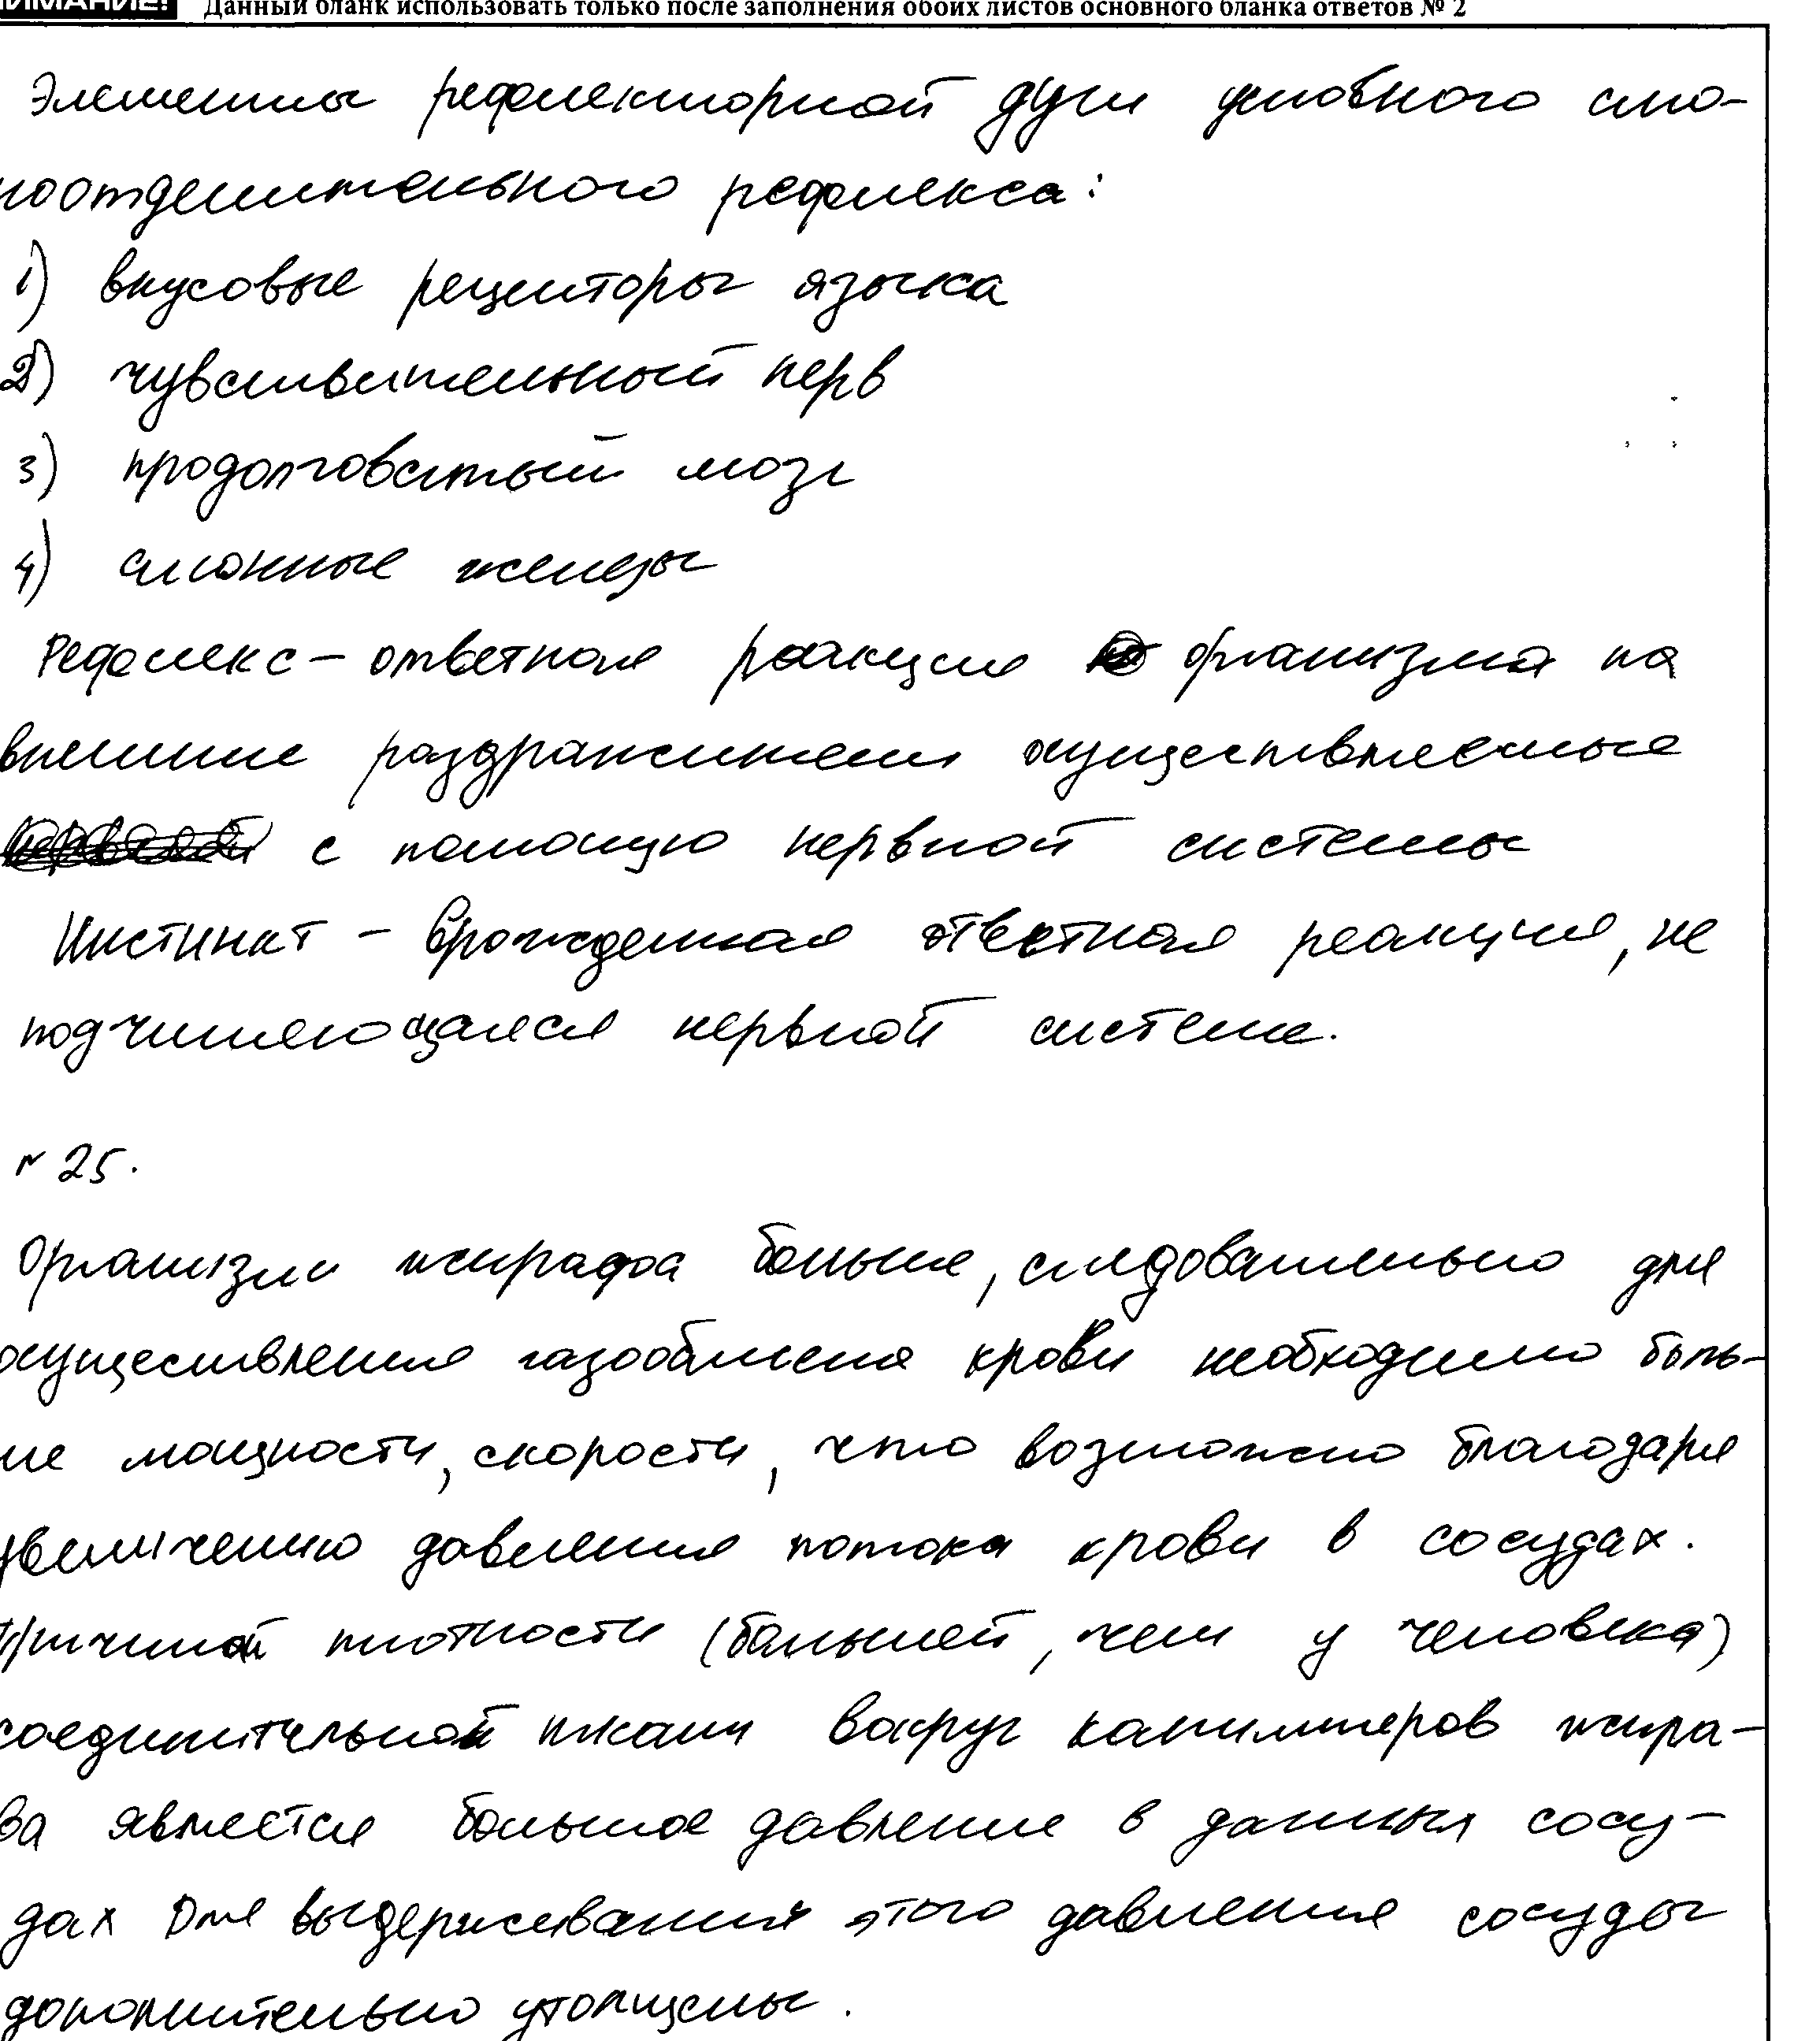 ВНИМАНИЕ! Данный бланк использовать только после заполнения обоих листов основного бланка ответов № 2
Элементы рефлекторной дуги условного слю-
ноотделительного рефлекса:
1) вкусовые рецепторы языка
2) чувствительный нерв
3) продолговатый мозг
4) слюнные железы
Рефлекс – ответная реакция организма на
внешние раздражители осуществляемые
с помощью нервной системы
Инстинкт – врожденная ответная реакция, не
подчиняющаяся нервной системе.
№ 25.
Организм жирафа больше, следовательно для
осуществления газообмена крови необходимо боль-
ше мощности, скорости, что возможно благодаря
увеличению давления потока крови в сосудах.
Причиной плотности (большей, чем у человека)
соединительной ткани вокруг капилляров жира-
ва является большое давление в данных сосу-
дах Для выдерживания этого давления сосуды
дополнительно утолщены.